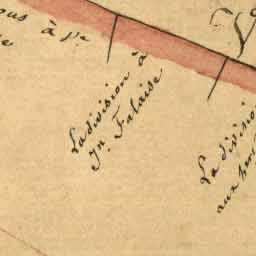 ous à Pe
La division à
Jn. Falaise
La division
aux